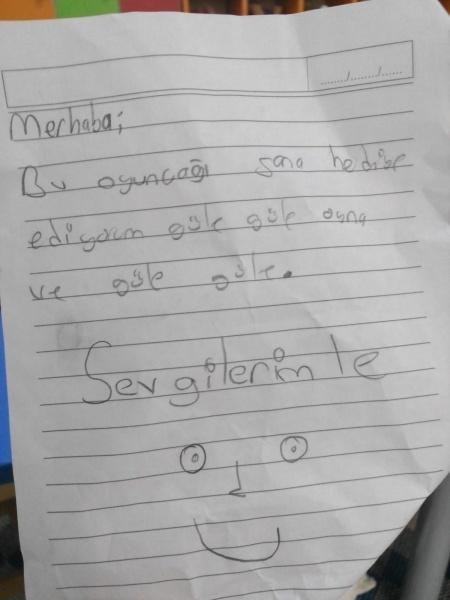 ......./......./......
Merhaba;
Bu oyuncağı sana hediye
ediyorum güle güle oyna
ve güle güle.
Sevgilerimle